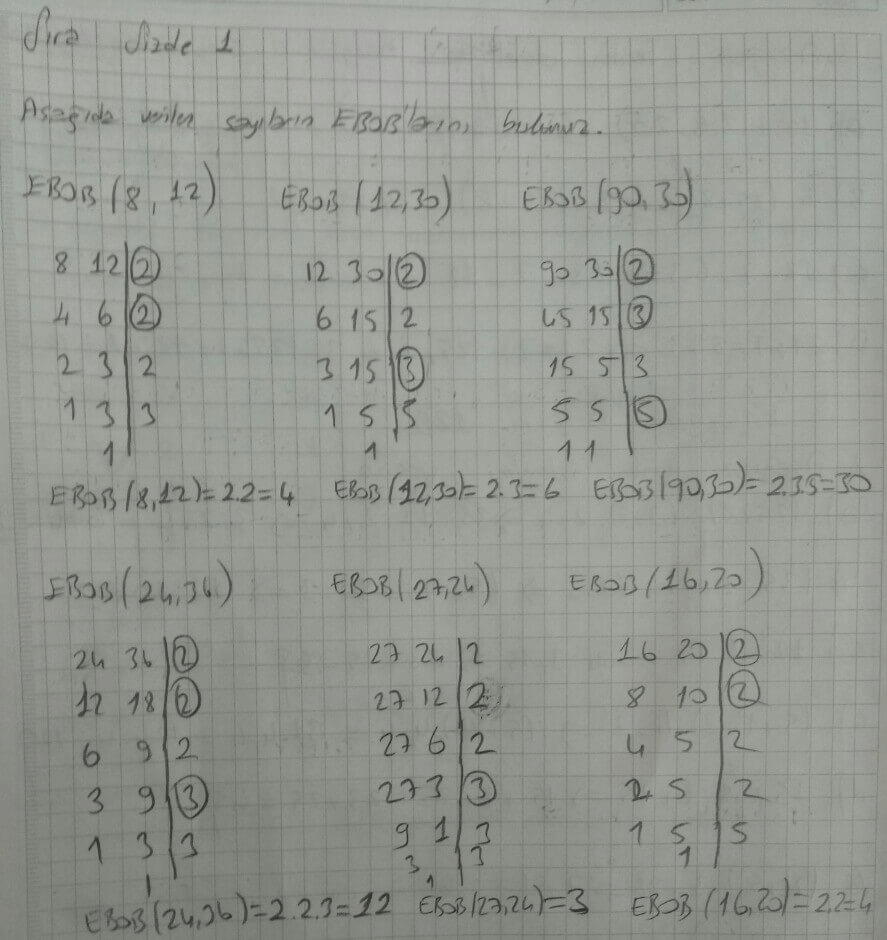 Sıra Sizde 1
Aşağıda verilen sayıların EBOB'larını bulunuz.
EBOB (8, 12) EBOB (12,30) EBOB (90,30)
8 12 2 12 30 2 90 30 2
4 6 2 6 15 2 45 15 3
2 3 2 3 15 3 15 5 3
1 3 3 1 5 5 5 5 5
1 1 1 1
EBOB(8,12)=2.2=4 EBOB(12,30)=2.3=6 EBOB(90,30)=2.3.5=30
EBOB(24,36) EBOB(27,24) EBOB(16,20)
24 36 2 27 24 2 16 20 2
12 18 2 27 12 2 8 10 2
6 9 2 27 6 2 4 5 2
3 9 3 27 3 3 2 5 2
1 3 3 9 1 3 1 5 5
1 3 1 3 1
EBOB(24,36)=2.2.3=12 EBOB(27,24)=3 EBOB(16,20)=2.2=4